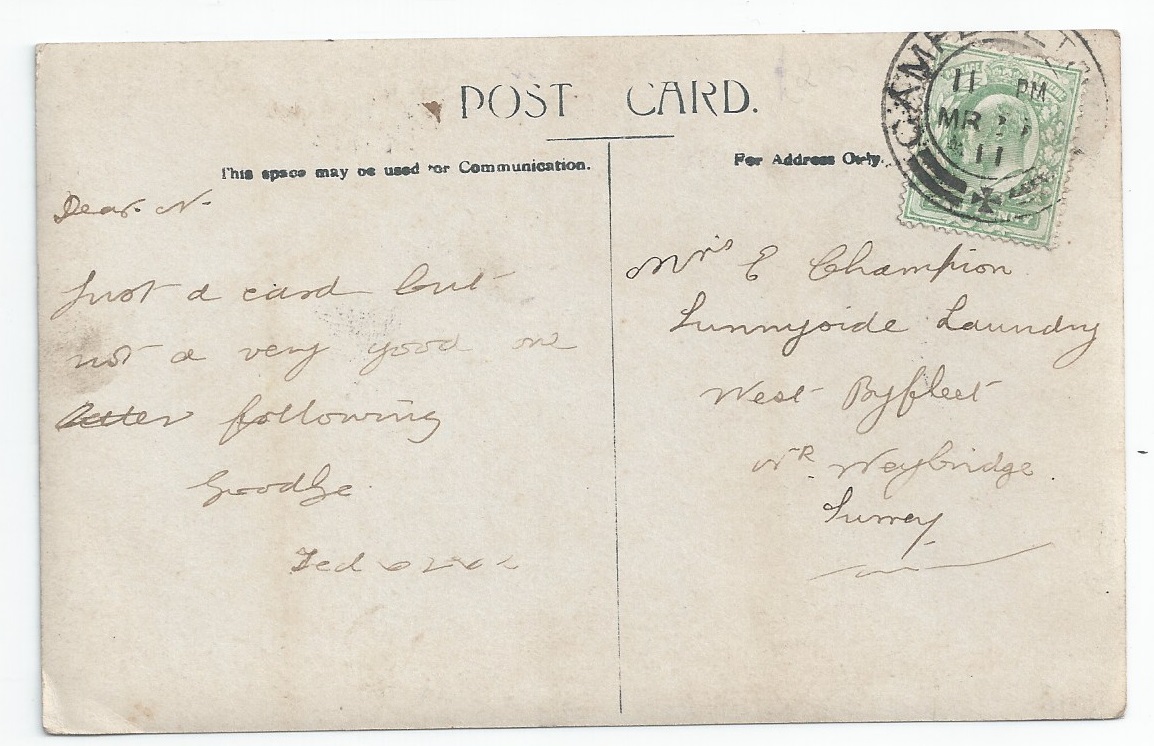 POST CARD.
This space may be used for Communication.
For Address Only.
11 PM
MR
11
Dear. N.
Just a card but
not a very good one
letter following
Goodbe
Ted
Mrs E Champion
Sunnyside Laundry
West Byfleet
Nr Weybridge
Surrey